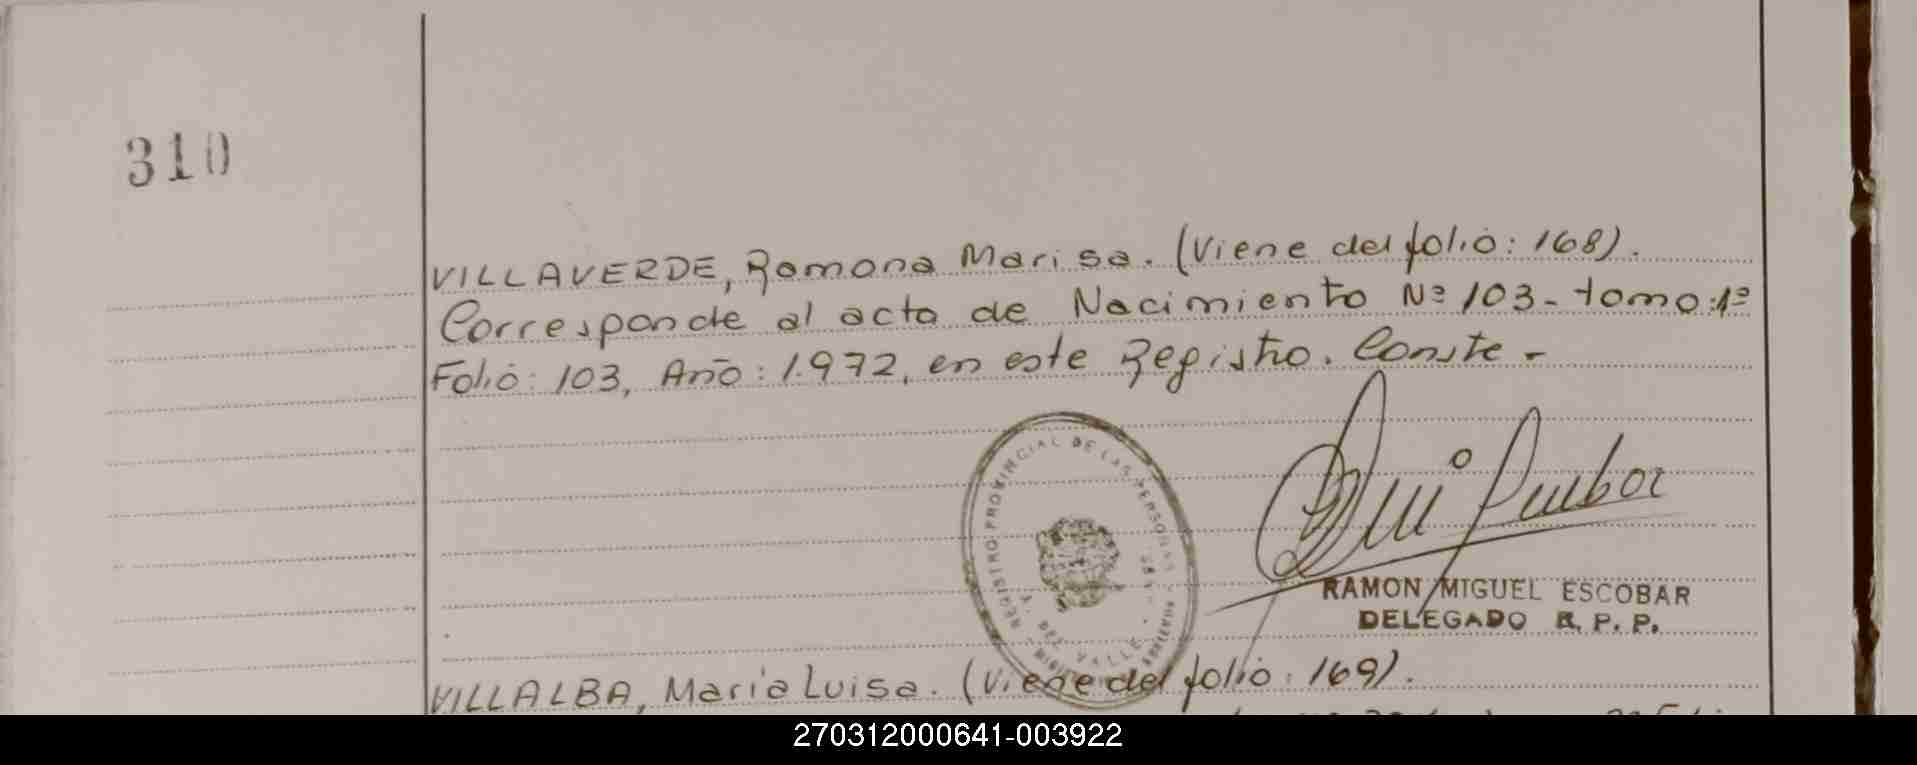 310
VILLAVERDE, Ramona Marisa. (Viene del folio: 168).
Corresponde al acta de Nacimiento Nº 103 - tomo: 1º
Folio: 103, Año: 1.972, en este Registro. Conste -
REGISTRO PROVINCIAL DE LAS PERSONAS
DEL VALLE
RAMON MIGUEL ESCOBAR
DELEGADO R. P. P.
VILLALBA, María Luisa. (Viene del folio: 169).
270312000641-003922